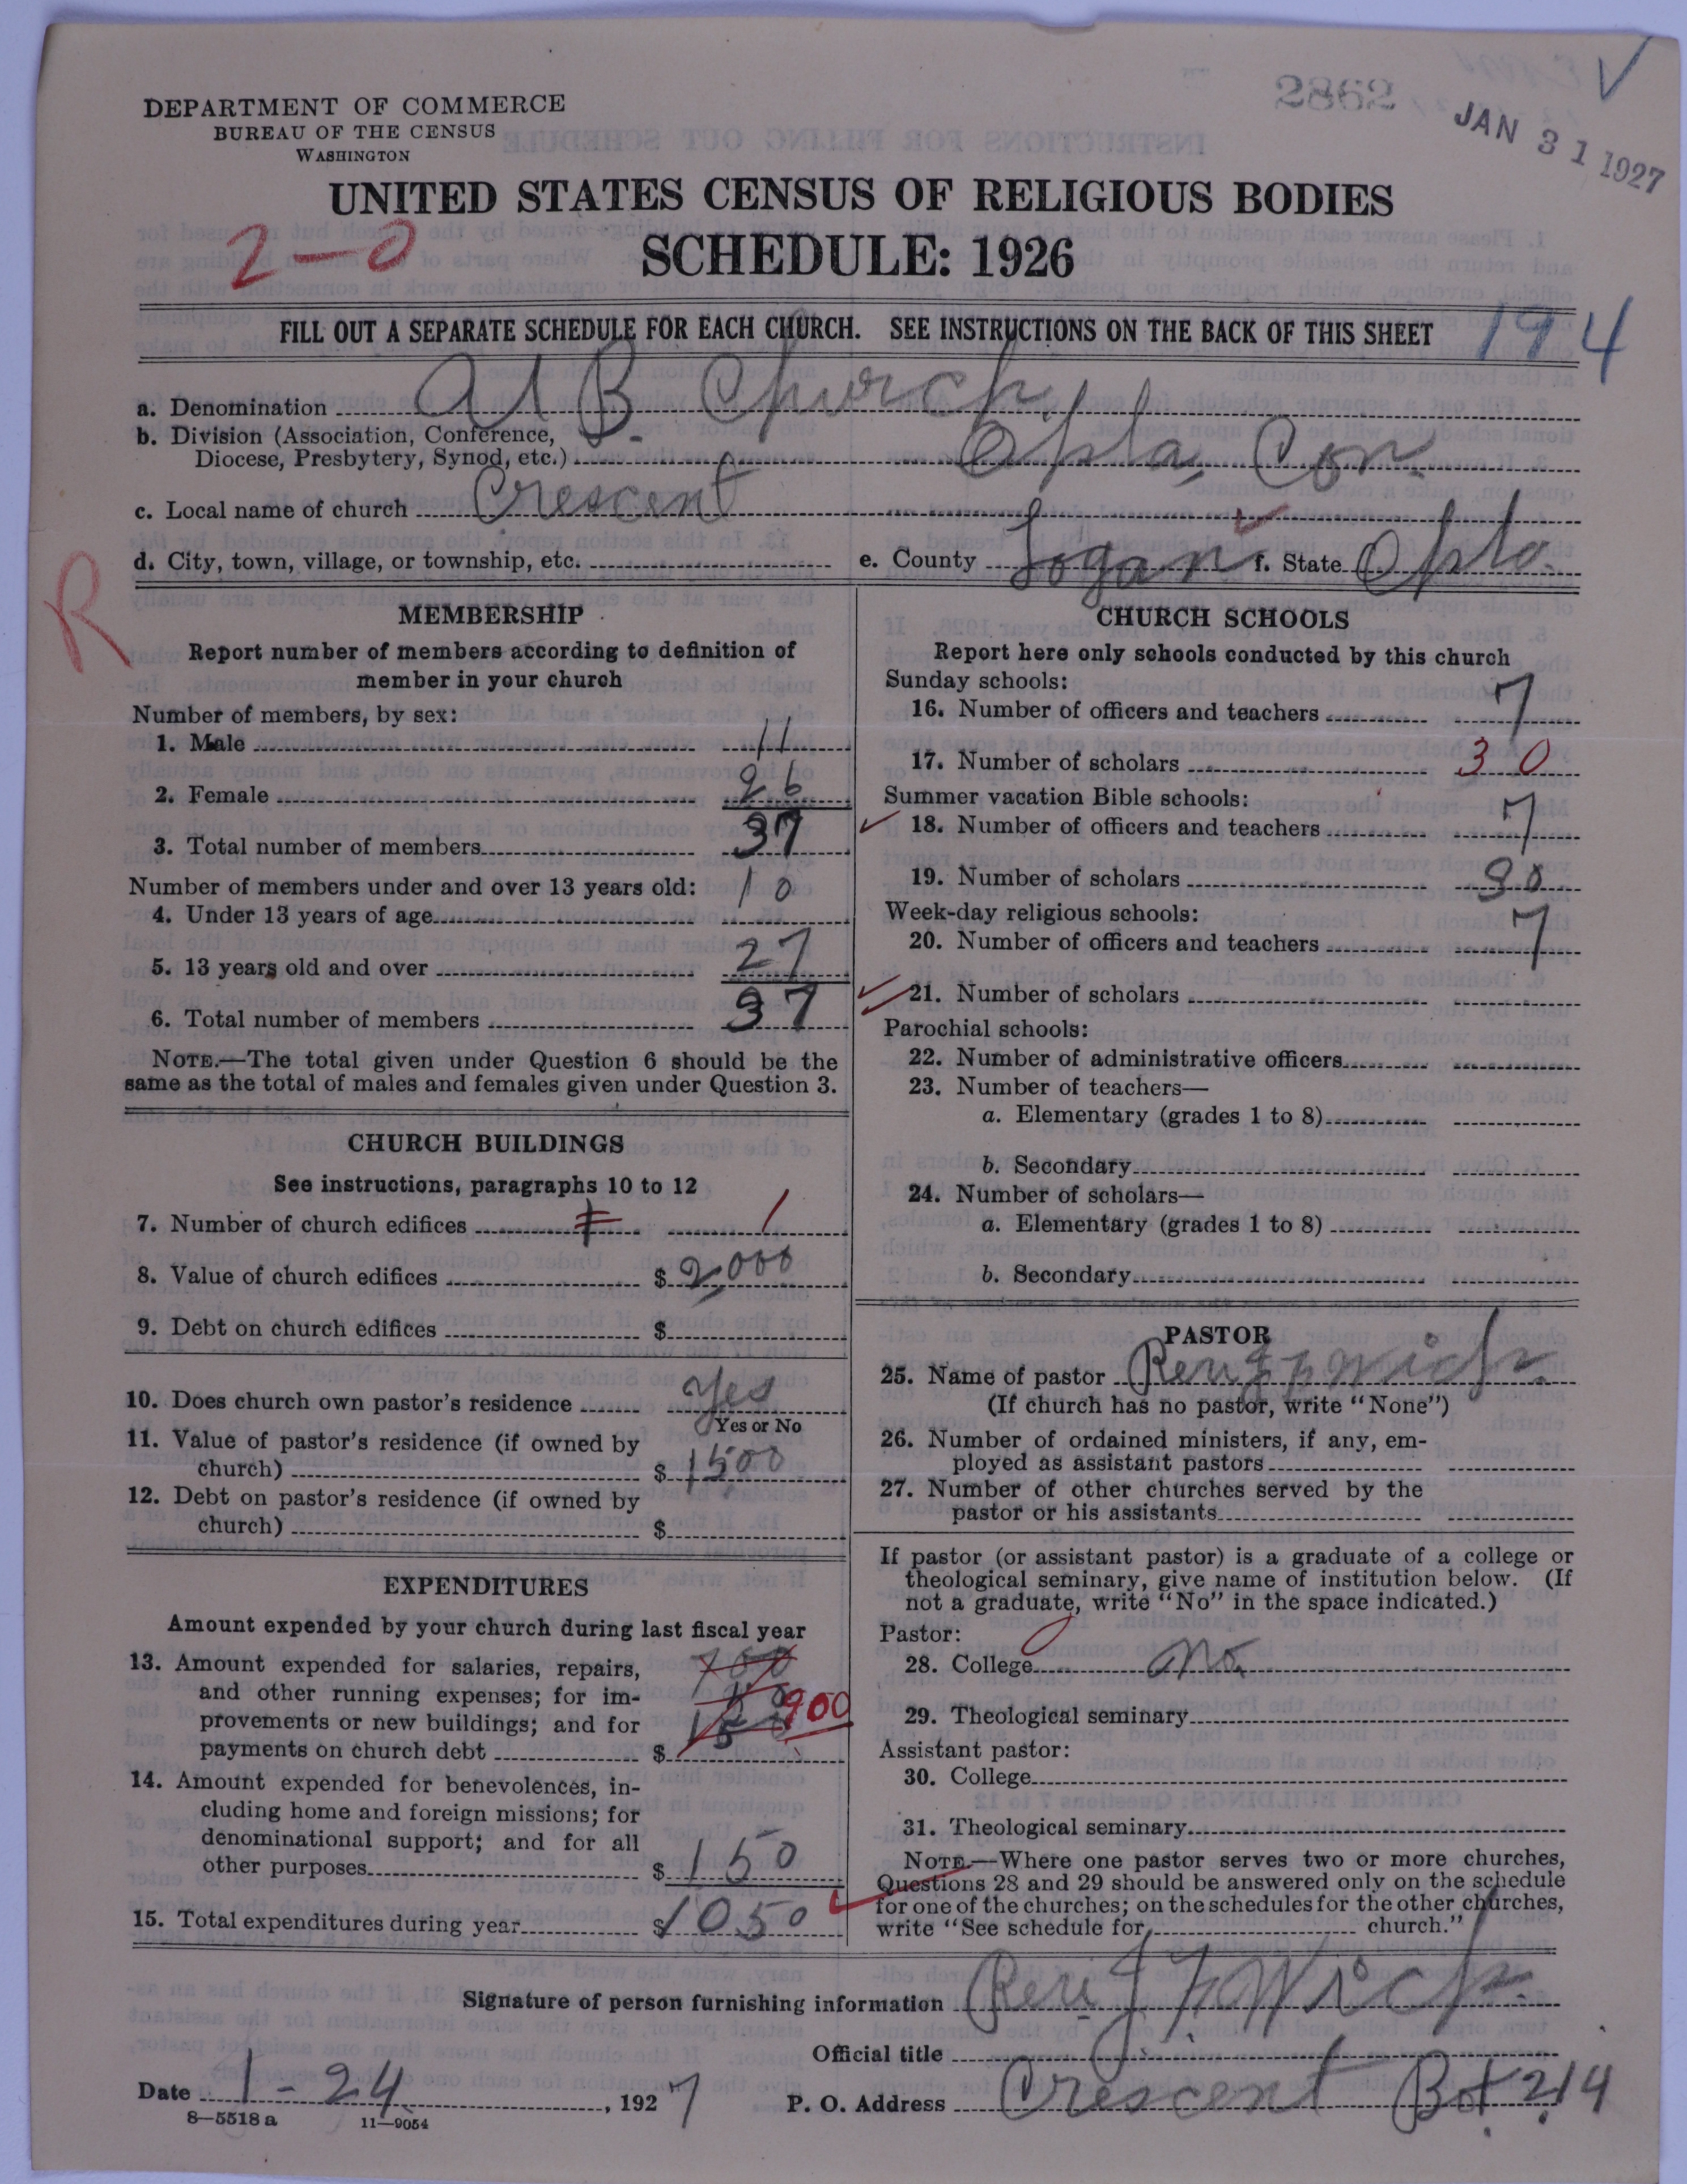 2862
JAN 31 1927
DEPARTMENT OF COMMERCE
BUREAU OF THE CENSUS
WASHINGTON
UNITED STATES CENSUS OF RELIGIOUS BODIES
2-0
SCHEDULE: 1926
FILL OUT A SEPARATE SCHEDULE FOR EACH CHURCH. SEE INSTRUCTIONS ON THE BACK OF THIS SHEET
194
a. Denomination U B. Church
b. Division (Association, Conference,
Diocese, Presbytery, Synod, etc.) Okla, Con.
c. Local name of church Crescent
d. City, town, village, or township, etc. e. County Logan f. State Okla.
R
MEMBERSHIP
Report number of members according to definition of
member in your church
Number of members, by sex:
1. Male 11
2. Female 26
3. Total number of members 37
Number of members under and over 13 years old:
4. Under 13 years of age 10
5. 13 years old and over 27
6. Total number of members 37
NOTE.—The total given under Question 6 should be the
same as the total of males and females given under Question 3.
CHURCH BUILDINGS
See instructions, paragraphs 10 to 12
7. Number of church edifices 1
8. Value of church edifices $ 2,000
9. Debt on church edifices $
10. Does church own pastor's residence Yes
Yes or No
11. Value of pastor's residence (if owned by
church) $ 1500
12. Debt on pastor's residence (if owned by
church) $
EXPENDITURES
Amount expended by your church during last fiscal year
13. Amount expended for salaries, repairs,
and other running expenses; for im-
provements or new buildings; and for
payments on church debt $ 900
14. Amount expended for benevolences, in-
cluding home and foreign missions; for
denominational support; and for all
other purposes $ 150
15. Total expenditures during year $ 1050
CHURCH SCHOOLS
Report here only schools conducted by this church
Sunday schools:
16. Number of officers and teachers 7
17. Number of scholars 30
Summer vacation Bible schools:
18. Number of officers and teachers 7
19. Number of scholars 30
Week-day religious schools:
20. Number of officers and teachers 7
21. Number of scholars
Parochial schools:
22. Number of administrative officers
23. Number of teachers—
a. Elementary (grades 1 to 8)
b. Secondary
24. Number of scholars—
a. Elementary (grades 1 to 8)
b. Secondary
PASTOR
25. Name of pastor Rev
(If church has no pastor, write "None")
26. Number of ordained ministers, if any, em-
ployed as assistant pastors
27. Number of other churches served by the
pastor or his assistants
If pastor (or assistant pastor) is a graduate of a college or
theological seminary, give name of institution below. (If
not a graduate, write "No" in the space indicated.)
Pastor:
28. College no
29. Theological seminary
Assistant pastor:
30. College
31. Theological seminary
NOTE.—Where one pastor serves two or more churches,
Questions 28 and 29 should be answered only on the schedule
for one of the churches; on the schedules for the other churches,
write "See schedule for church."
Signature of person furnishing information Rev
Official title
Date 1-24, 1927 P. O. Address Crescent Box 214
8—5518 a 11—9054